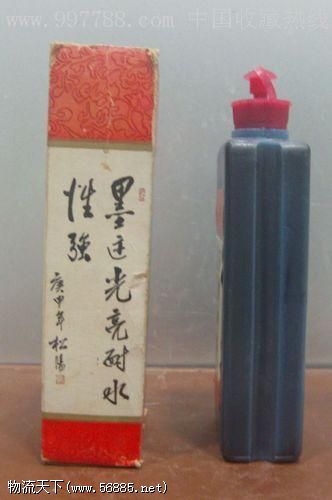 www.997788.com 中国收藏热线
墨迹光亮耐水
性強
庚申年 松
物流天下(www.56885.net)